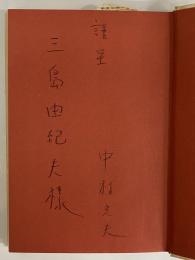 謹呈
三島由紀夫様
中村光夫